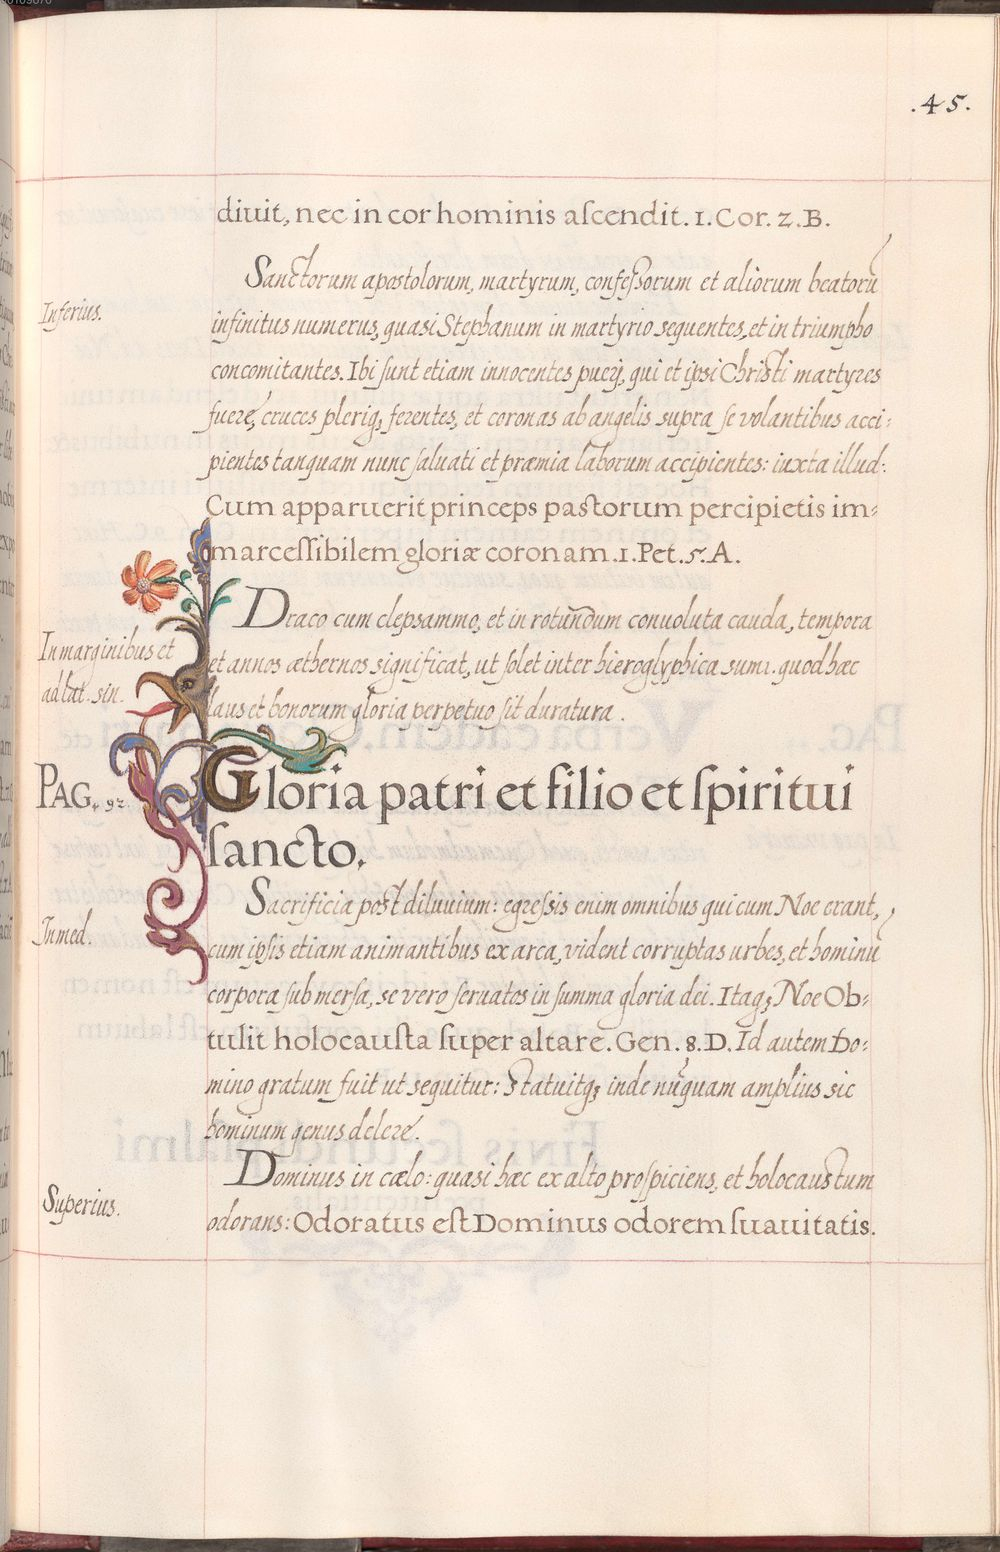 .45.
diuit, nec in cor hominis aſcendit. 1. Cor. 2. B.
Sanctorum apostolorum, martyrum, confeſsorum et aliorum beatorũ
Inferius.
infinitus numerus, quasi Stephanum in martyrio sequentes, et in triumpho
concomitantes. Ibi ſunt etiam innocentes pueri, qui et ipsi Christi martyres
fuerẽ, cruces pleriq; ferentes, et coronas ab angelis supra ſe volantibus acci:
pientes tanquam nunc ſaluati et præmia laborum accipientes: iuxta illud:
Cum apparuerit princeps pastorum percipietis im:
marceſſibilem gloriæ coronam. 1. Pet. 5. A.
Draco cum clepsammo, et in rotundum conuoluta cauda, tempora
In marginibus et
et annos æthernos significat, ut ſolet inter hieroglyphica sumi. quod hæc
ad lat. sin.
laus et honorum gloria perpetuo ſit duratura.
PAG. 92.
Gloria patri et filio et ſpiritui
ſancto.
Sacrificia post diluuium: egreſsis enim omnibus qui cum Noe erant,
In med.
cum ipſis etiam animantibus ex arca, vident corruptas urbes, et hominũ
corpora ſubmerſa, se vero ſeruatos in ſumma gloria dei. Itaq; Noe Ob:
tulit holocausta ſuper altare. Gen. 8. D. Id autem Do:
mino gratum fuit ut sequitur: Statuitq; inde nũquam amplius sic
hominum genus delere.
Dominus in cælo: quasi hæc ex alto proſpiciens, et holocaustum
Superius.
odorans: Odoratus est Dominus odorem ſuauitatis.